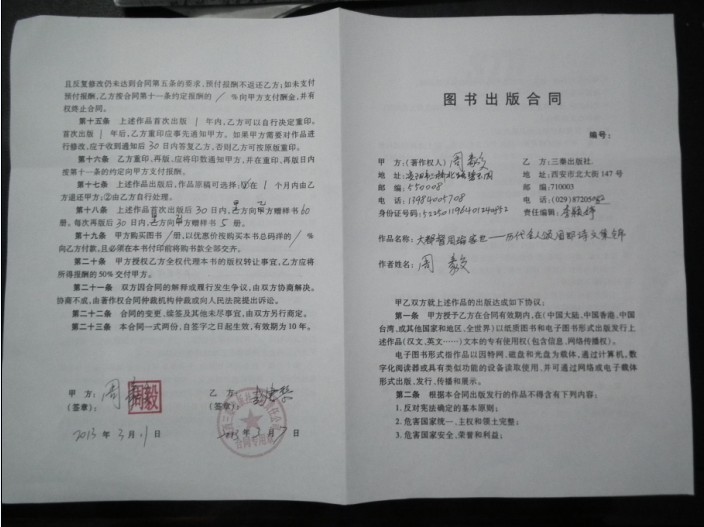 且反复修改仍未达到合同第五条的要求,预付报酬不退还乙方;如未支付
预付报酬,乙方按合同第十一条约定报酬的 / %向甲方支付酬金,并有
权终止合同。
第十五条 上述作品首次出版 1 年内,乙方可以自行决定重印。
首次出版 1 年后,乙方重印应事先通知甲方。如果甲方需要对作品进
行修改,应于收到通知后 30 日内答复乙方,否则乙方可按原版重印。
第十六条 乙方重印、再版,应将印数通知甲方,并在重印、再版 日内
按第十一条的约定向甲方支付报酬。
第十七条 上述作品出版后,作品原稿可选择: 在 1 个月内由乙
方退还甲方;②由乙方自行处理。
第十八条 上述作品首次出版后 30 日内, 方向 方赠样书 60
册。每次再版后 30 日内, 方向 方赠样书 5 册。
第十九条 甲方购买图书 / 册,以优惠价按购买本书总码洋的 / %
向乙方付款,且必须在本书付印前将购书款全部交齐。
第二十条 甲方授权乙方全权代理本书的版权转让事宜,乙方应将
所得报酬的 50% 交付甲方。
第二十一条 双方因合同的解释或履行发生争议,由双方协商解决。
协商不成,由著作权合同仲裁机构仲裁或向人民法院提出诉讼。
第二十二条 合同的变更、续签及其他未尽事宜,由双方另行商定。
第二十三条 本合同一式两份,自签字之日起生效,有效期为 10 年。
甲 方: 周 毅
(签章):
2013 年 3 月 1 日
乙 方:
(签章):
合同专用章
2013 年 3 月 7 日
图书出版合同
编号:
甲 方:(著作权人) 周 毅
地 址:
邮 编: 550008
电 话: 11984005708
身份证号码:
乙 方:三秦出版社.
地 址:西安市北大街 147 号
邮 编:710003
电 话:(029)87205
责任编辑:
作品名称: 历代名人
作者姓名: 周 毅
甲乙双方就上述作品的出版达成如下协议:
第一条 甲方授予乙方在合同有效期内,在(中国大陆、中国香港、中国
台湾、或其他国家和地区、全世界)以纸质图书和电子图书形式出版发行上
述作品(汉文、英文……)文本的专有使用权(包含信息、网络传播权)。
电子图书形式指作品以因特网、磁盘和光盘为载体,通过计算机、数
字化阅读器或具有类似功能的设备读取使用,并可通过网络或电子载体
形式出版、发行、传播和展示。
第二条 根据本合同出版发行的作品不得含有下列内容:
1. 反对宪法确定的基本原则;
2. 危害国家统一、主权和领土完整;
3. 危害国家安全、荣誉和利益;